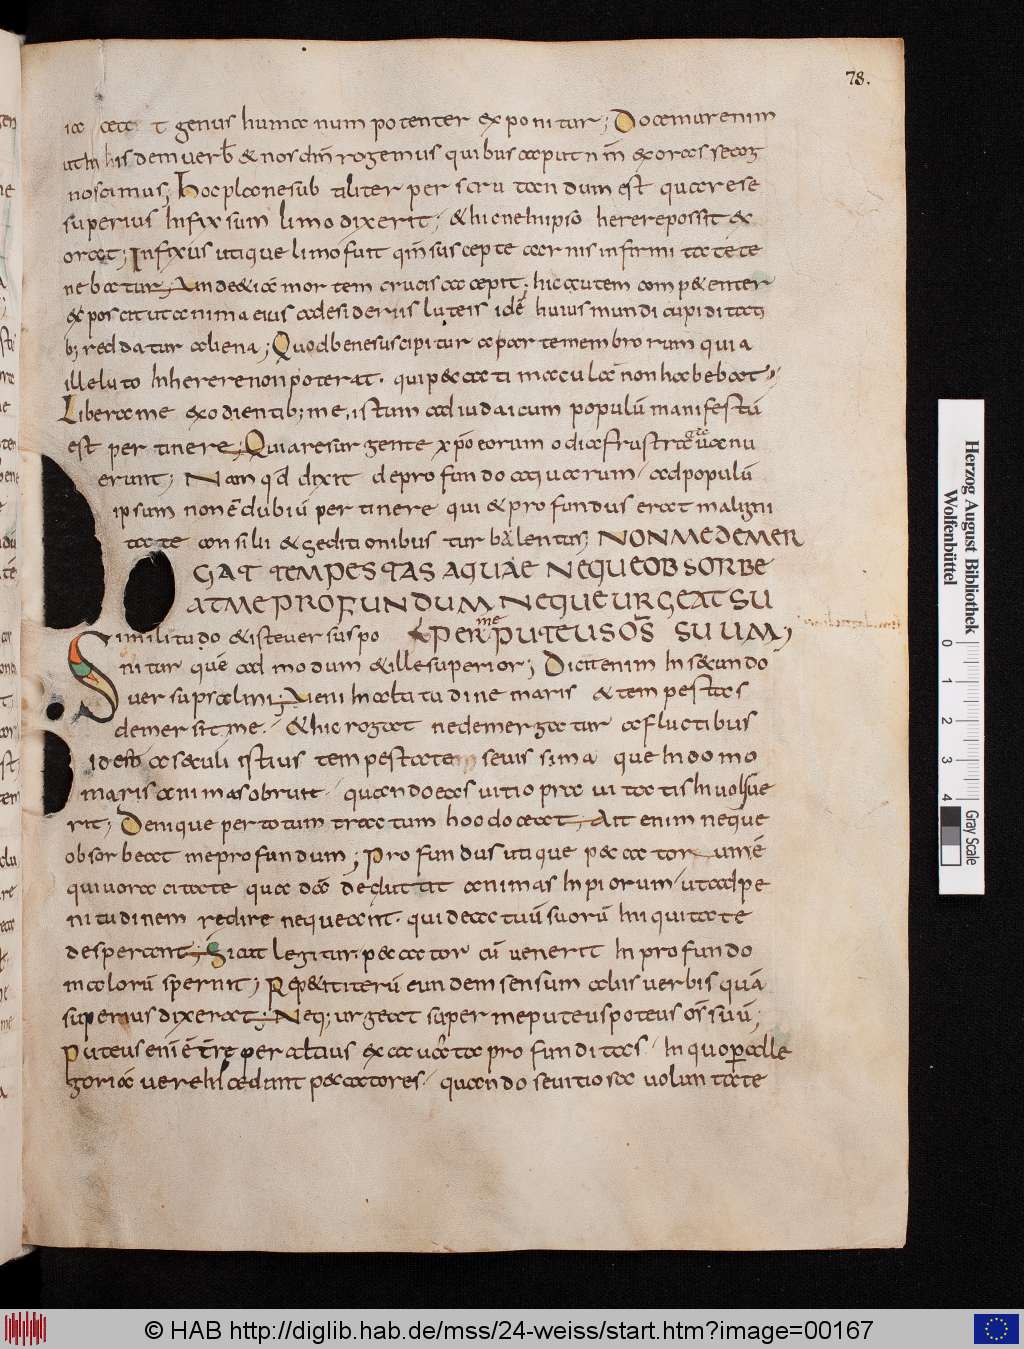 78.
t genus humanum potenter exponitur; Docemur enim
ut in his dem verb & nos dnm rogemus quibus caput nrm exorasse cog
noscimus; Hoc plane sub tiliter per scru tan dum est quare se
superius Infixsum limo dixerit; & hic ne Inipso herere possit ex
orat; Infixus utique limo fuit qm suscepte carnis infirmi tate te
nebatur, Unde & iam mortem crucis accepit; hic autem competenter
exposcit ut anima eius a desideriis luteis idē huius mundi cupiditati
b; reddatur aliena; Quod bene suscipitur a parte membrorum quia
ille luto Inherere non poterat. qui peccati maculam non habebat;
Libera me ex odientib; me, istum ad iudaicum populū manifestū
est per tinere; Quia resurgente xpō eorum odia frustrata euanu
erunt; Nam qd dixit de profundo aquarum, ad populū
ipsum non ē dubiū per tinere qui & profundus erat maligni
tate consilii & seditionibus turbulentus; NON ME DEMER
GAT TEMPESTAS AQUAE NEQUE OBSORBE
AT ME PROFUNDUM NEQUE URGEAT SU
PER me PUTEUS OS SUUM;
Similitudo & iste uersus po
nitur quē ad modum & ille superior; Dicit enim In secundo
uersu psalmi; Ueni In altitudine maris & tempestas
demersit me. & hic rogat ne demergatur a fluctibus
id est a seculi istius tempestate seuissima que In domo
maris animas obruit. quando eas uitio prauitatis Inuolue
rit; Denique per totum tractum hoc docet, Ait enim neque
obsorbeat me profundum; Profundus utique peccatorum ē
qui uoracitate qua dā deglutit animas Inpiorum, ut ad pe
nitudinem redire nequeant. qui de actuū suorū Iniquitate
desperant; Sicut legitur. peccator cū uenerit In profundo
malorū spernit; Repetit iterū eundem sensum aliis uerbis quā
superius dixerat; Neq; urgeat super me puteus os suū;
Puteus enī ē terre per altius excauata profunditas. In quo p alle
goriā uere Incedunt peccatores. quando se uitiosa uoluntate
Herzog August Bibliothek
Wolfenbüttel
0 1 2 3 4
Gray Scale
© HAB http://diglib.hab.de/mss/24-weiss/start.htm?image=00167